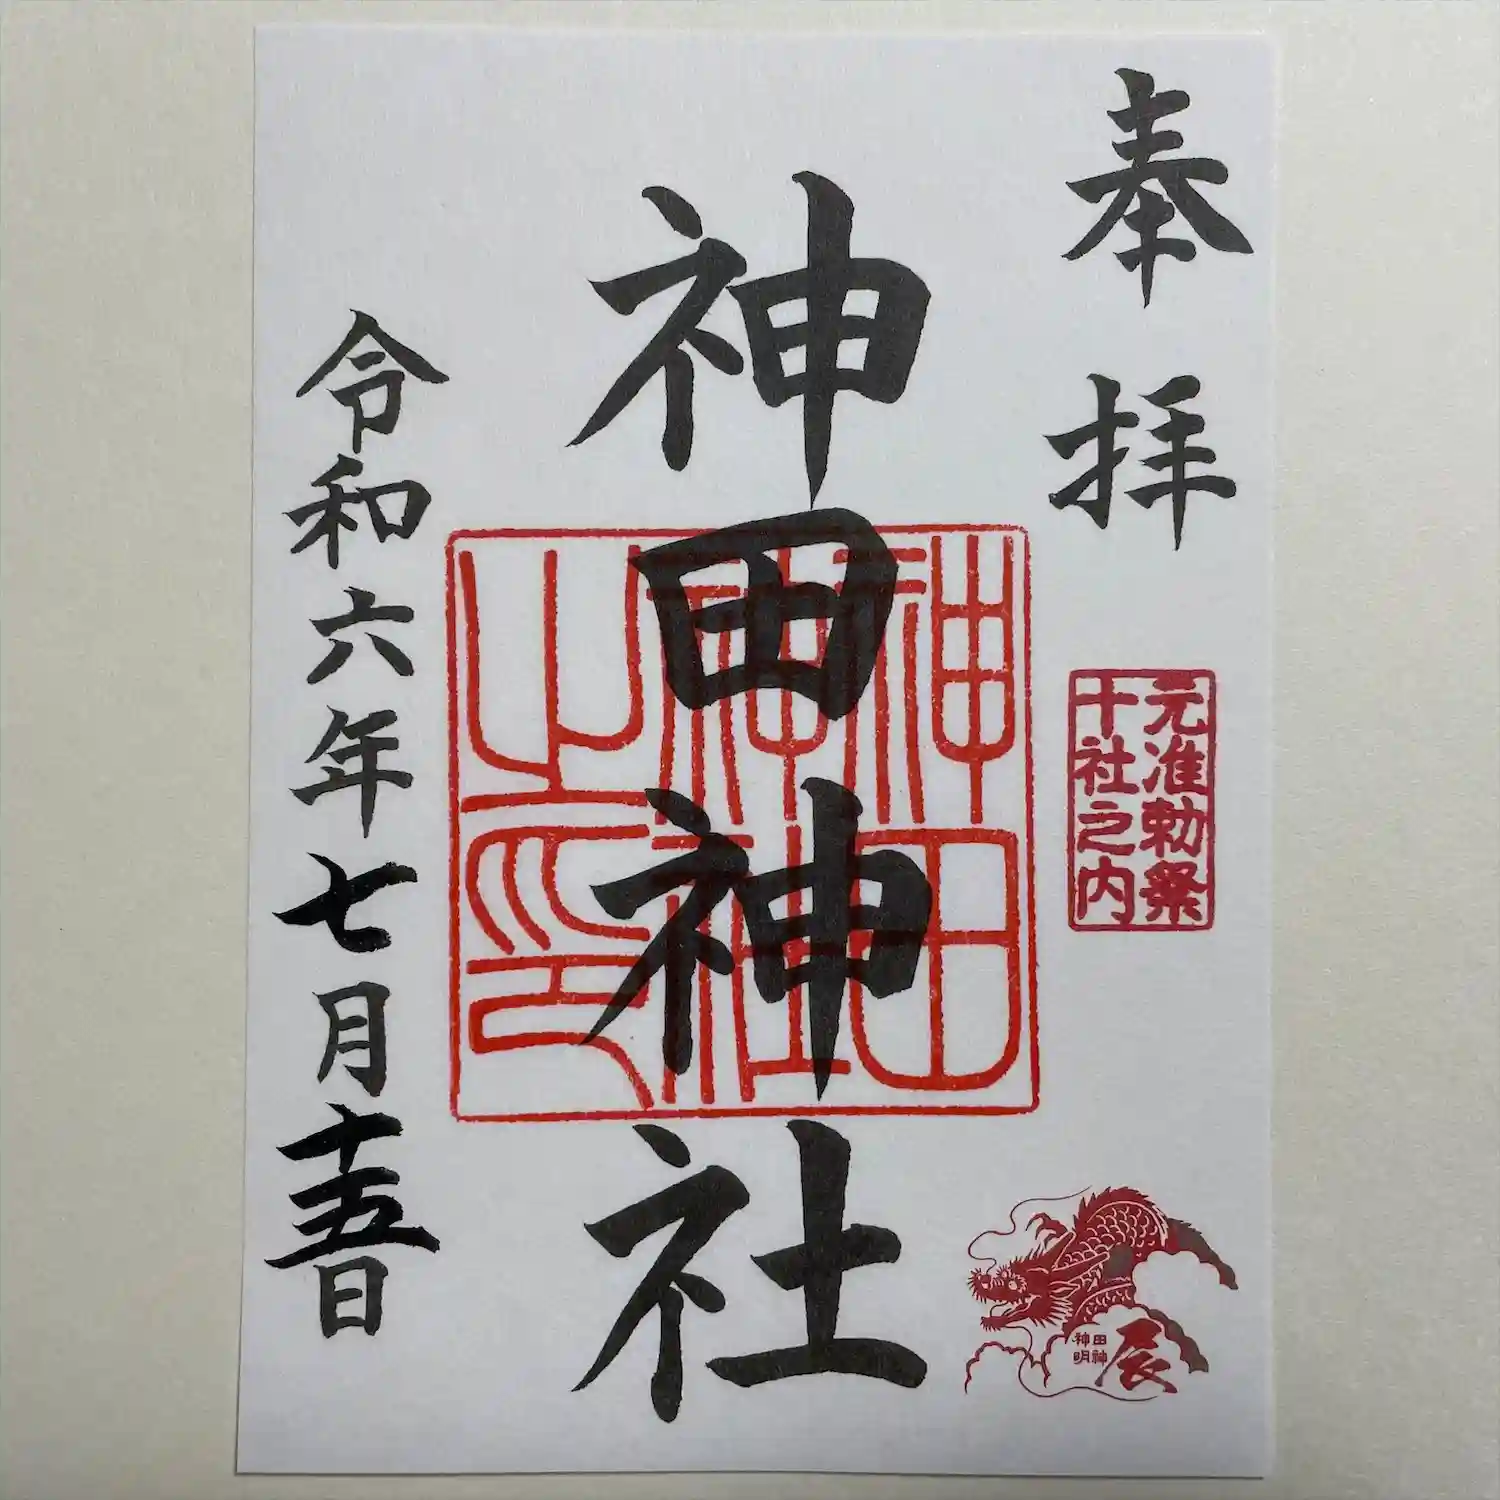 奉拝
元准勅祭
十社之内
神田神社
神田
神社
之印
令和六年七月十五日
辰
田神
神明